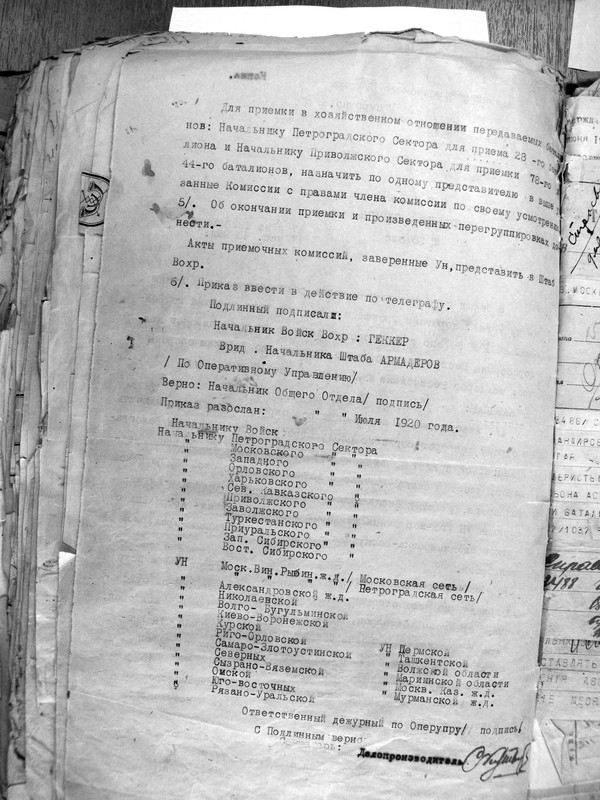 Копия.
Для приемки в хозяйственном отношении передаваемых
нов: Начальнику Петроградского Сектора для приема 28-го
лиона и Начальнику Приволжского Сектора для приемки 78-го
44-го баталионов, назначить по одному представителю в выше
занные Комиссии с правами члена комиссии по своему усмотрению
5/. Об окончании приемки и произведенных перегруппировках
нести.-
Акты приемочных комиссий, заверенные Ун, представить в Штаб
Вохр.
6/. Приказ ввести в действие по телеграфу.
Подлинный подписали:
Начальник Войск Вохр : ГЕККЕР
Врид . Начальника Штаба АРМАДЕРОВ
/ По Оперативному Управлению/
Верно: Начальник Общего Отдела/ подпись/
Приказ разослан: " " Июля 1920 года.
Начальнику Войск
Начальнику Петроградского Сектора
" Московского " "
" Западного " "
" Орловского " "
" Харьковского " "
" Сев. Кавказского "
" Приволжского " "
" Заволжского " "
" Туркестанского " "
" Приуральского " "
" Зап. Сибирского" "
" Вост. Сибирского "
УН Моск.Вин.Рыбин.ж.д./ Московская сеть/
" " " " / Петроградская сеть/
" Александровской ж.д.
" Николаевской
" Волго- Бугульминской
" Киево-Воронежской
" Курской
" Риго-Орловской УН Пермской
" Самаро-Златоустинской " Ташкентской
" Северных " Волжской области
" Сызрано-Вяземской " Мариинской области
" Омской " Москв. Каз. ж.д.
" Юго-восточных " Мурманской ж.д.
" Рязано-Уральской
Ответственный дежурный по Оперупру/ подпись/
С Подлинным верно
Делопроизводитель